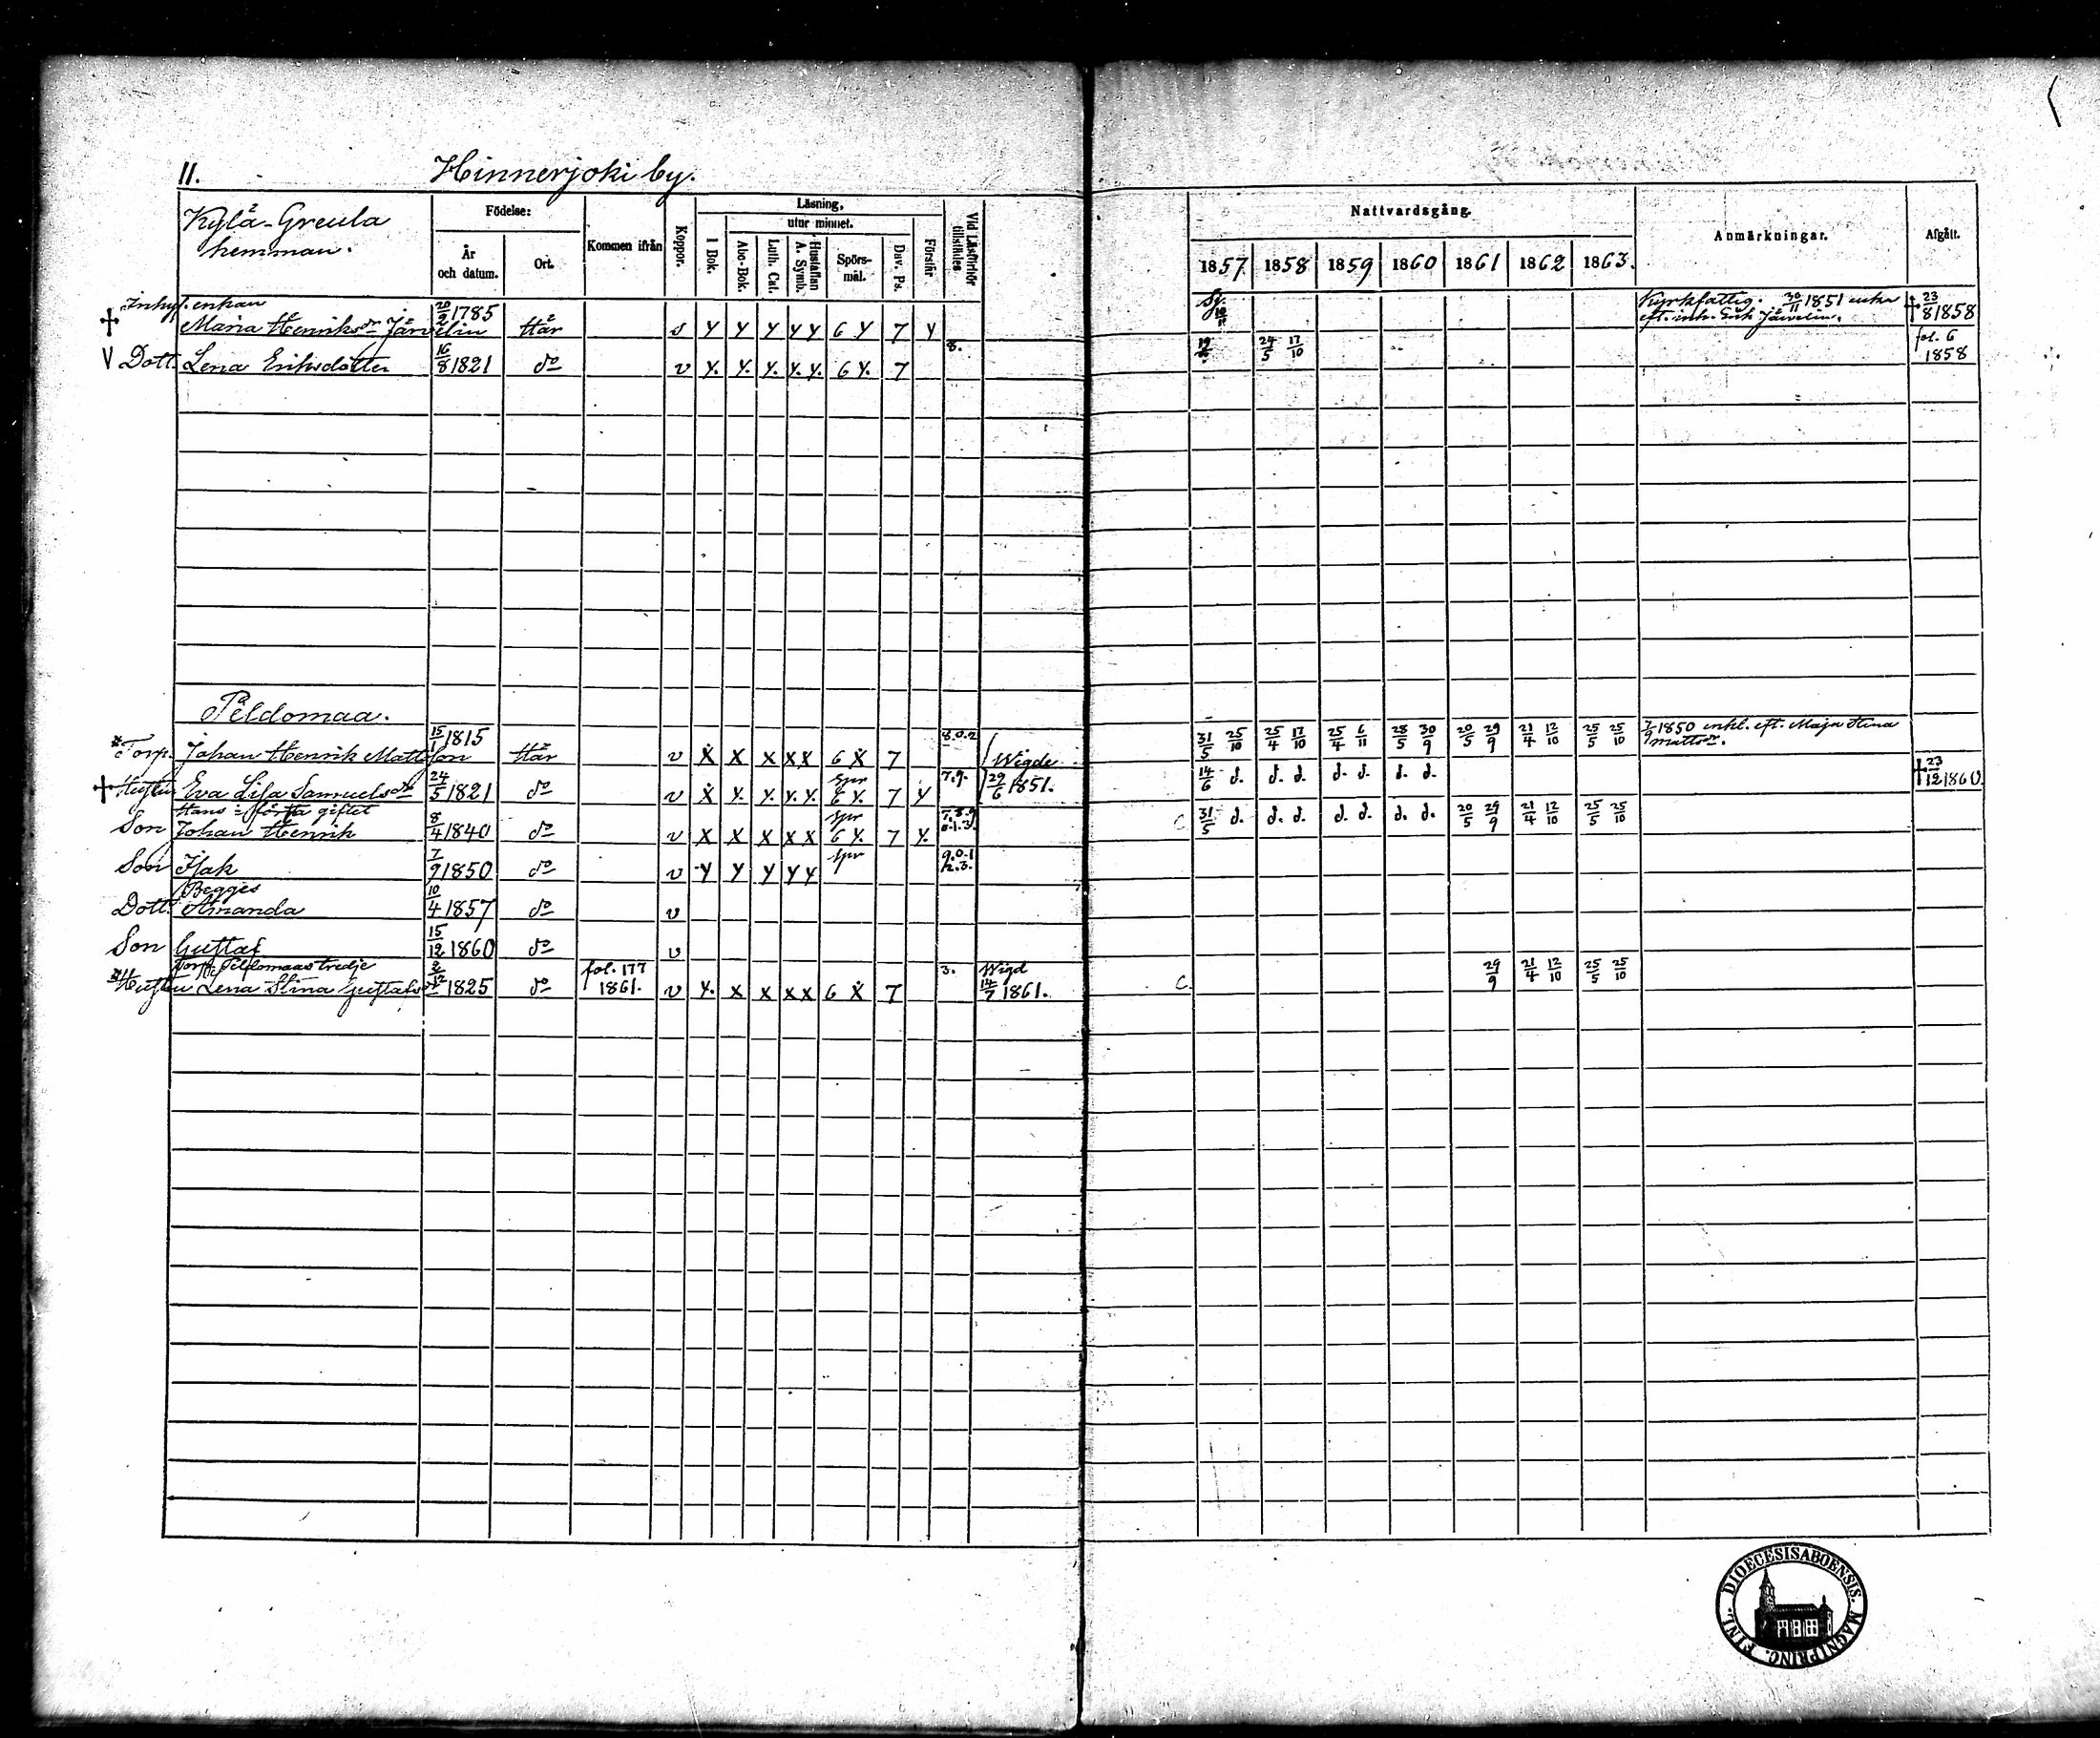 11. Hinnerjoki by.
Kylä-Greula
hemman.
Födelse:
År
och datum.
Ort.
Kommen ifrån
Koppor.
Läsning,
utur minnet.
I Bok.
Abc-Bok.
Luth. Cat.
Hustaflan
A. Symb.
Spörs-
mål.
Dav. Ps.
Förstår
Vid Läsförhör
tillstädes
Nattvardsgång.
1857 1858 1859 1860 1861 1862 1863.
Anmärkningar.
Afgått.
Inhys. enkan
Maria Henriksdr Järvelin 20/2 1785 Här v y y y y y 6 y 7 y 10/11 Kyrkfattig. 30/11 1851 enka
eft. inh. Erik Järvelin. † 23/8 1858
V Dott. Lena Eriksdotter 16/8 1821 do v y. y. y. y. y. 6 y. 7 8. 24/5 17/10 fol. 6
1858
Peldomaa.
Torp. Johan Henrik Mattsson 15/1 1815 Här v x x x x x 6 x 7 8.0.2 Wigde 31/5 25/10 25/4 17/10 25/4 6/11 28/5 30/9 20/5 29/9 21/4 12/10 25/5 25/10 7/9 1850 enkl. eft. Maja Stina
Mattsdr.
† Hustru Eva Lisa Samuelsdr 24/5 1821 do v x y. y. y. y. spr 6 y. 7 y 7.9. 29/6 1851. 14/6 d. d. d. d. d. d. d. † 23/12 1860.
Hans i första giftet
Son Johan Henrik 8/4 1840 do v x x x x x spr 6 y. 7 y. 7.8.9 0.1.3. C. 31/5 d. d. d. d. d. d. d. 20/5 29/9 21/4 12/10 25/5 25/10
Son Isak 7/9 1850 do v y y y y y spr 9.0.1 2.3.
Begges
Dott. Amanda 10/4 1857 do v
Son Gustaf 15/12 1860 do v
Torp. Peldomaas tredje
Hustru Lena Stina Gustafsdr 2/12 1825 do fol. 177
1861. v y. x x x x 6 x 7 3. Wigd
14/7 1861. C. 29/9 21/4 12/10 25/5 25/10
DIOECESIS ABOENSIS. MAGNI PRINC. FINL.